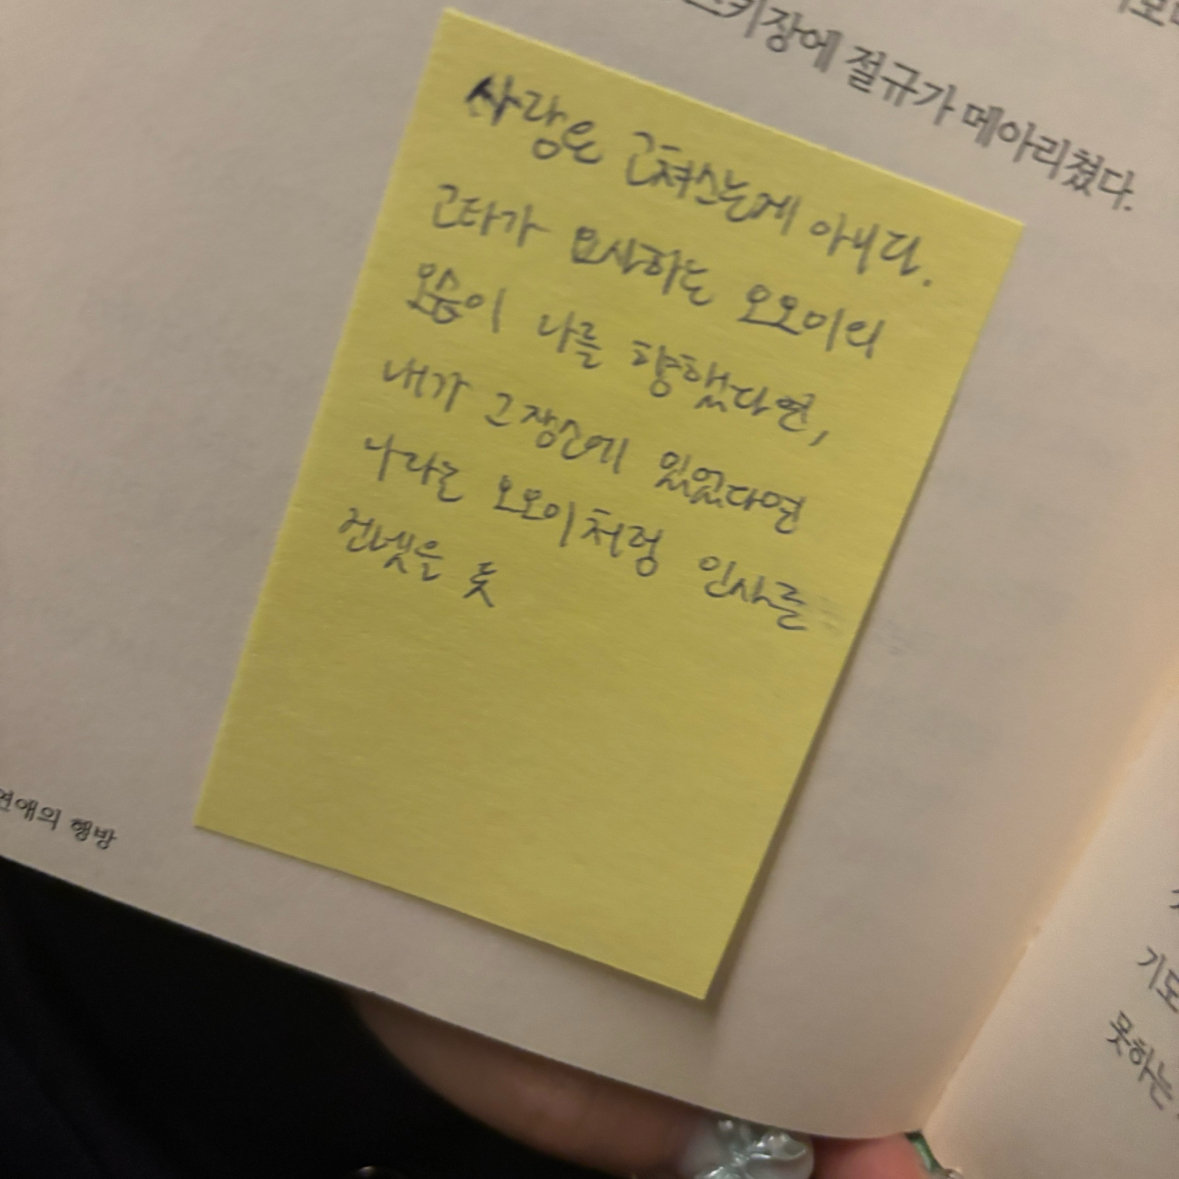 키장에 절규가 메아리쳤다.
사랑은 고쳐쓰는게 아니다.
고타가 묘사하는 모모미의
웃음이 나를 향했다면,
내가 그 장소에 있었다면
나라는 모모미처럼 인사를
건넸을 듯
연애의 행방
기도
못하는